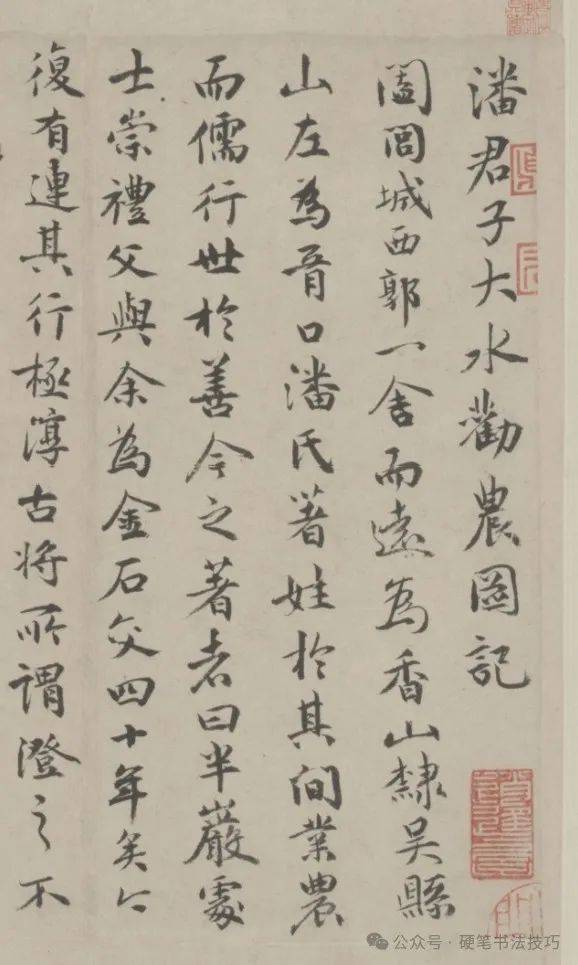 潘君子大水勸農圖記
闔閭城西郭一舍而遠為香山隸吳縣
山左為胥口潘氏著姓於其間業農
而儒行世於善今之著者曰半巖處
士崇禮父與余為金石交四十年矣今
復有連其行極淳古將所謂澄之不
公众号 · 硬笔书法技巧